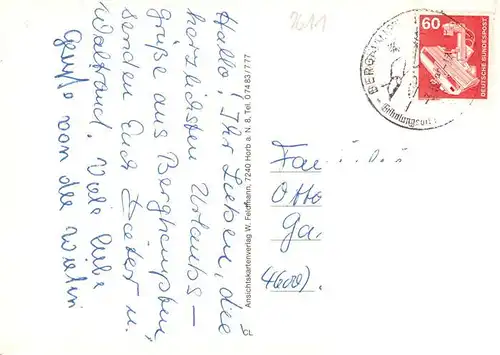 2611
Hallo! Ihr Lieben, die
herzlichsten Urlaubs-
grüße aus Berghaupten,
senden Euch Dieter u.
Waltraud. Viele liebe
Grüße von der Wirtin
Ansichtskartenverlag W. Feldmann, 7240 Horb a. N. 8, Tel. 07483/777
60
DEUTSCHE BUNDESPOST
BERGHAUPTEN
Erholungsort
Fam
Otto
Ga
4600